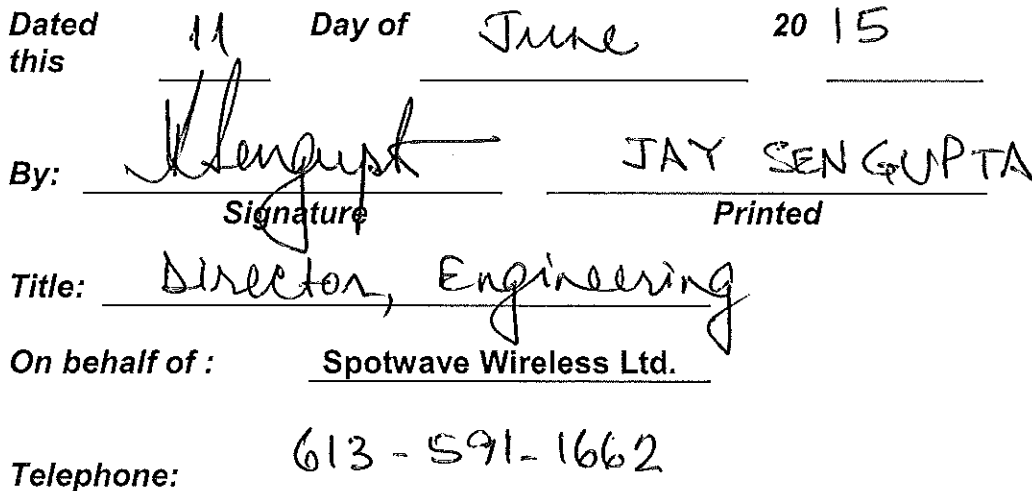 Dated this 11 Day of June 20 15
By: JSengupta JAY SENGUPTA
Signature Printed
Title: Director, Engineering
On behalf of : Spotwave Wireless Ltd.
Telephone: 613-591-1662